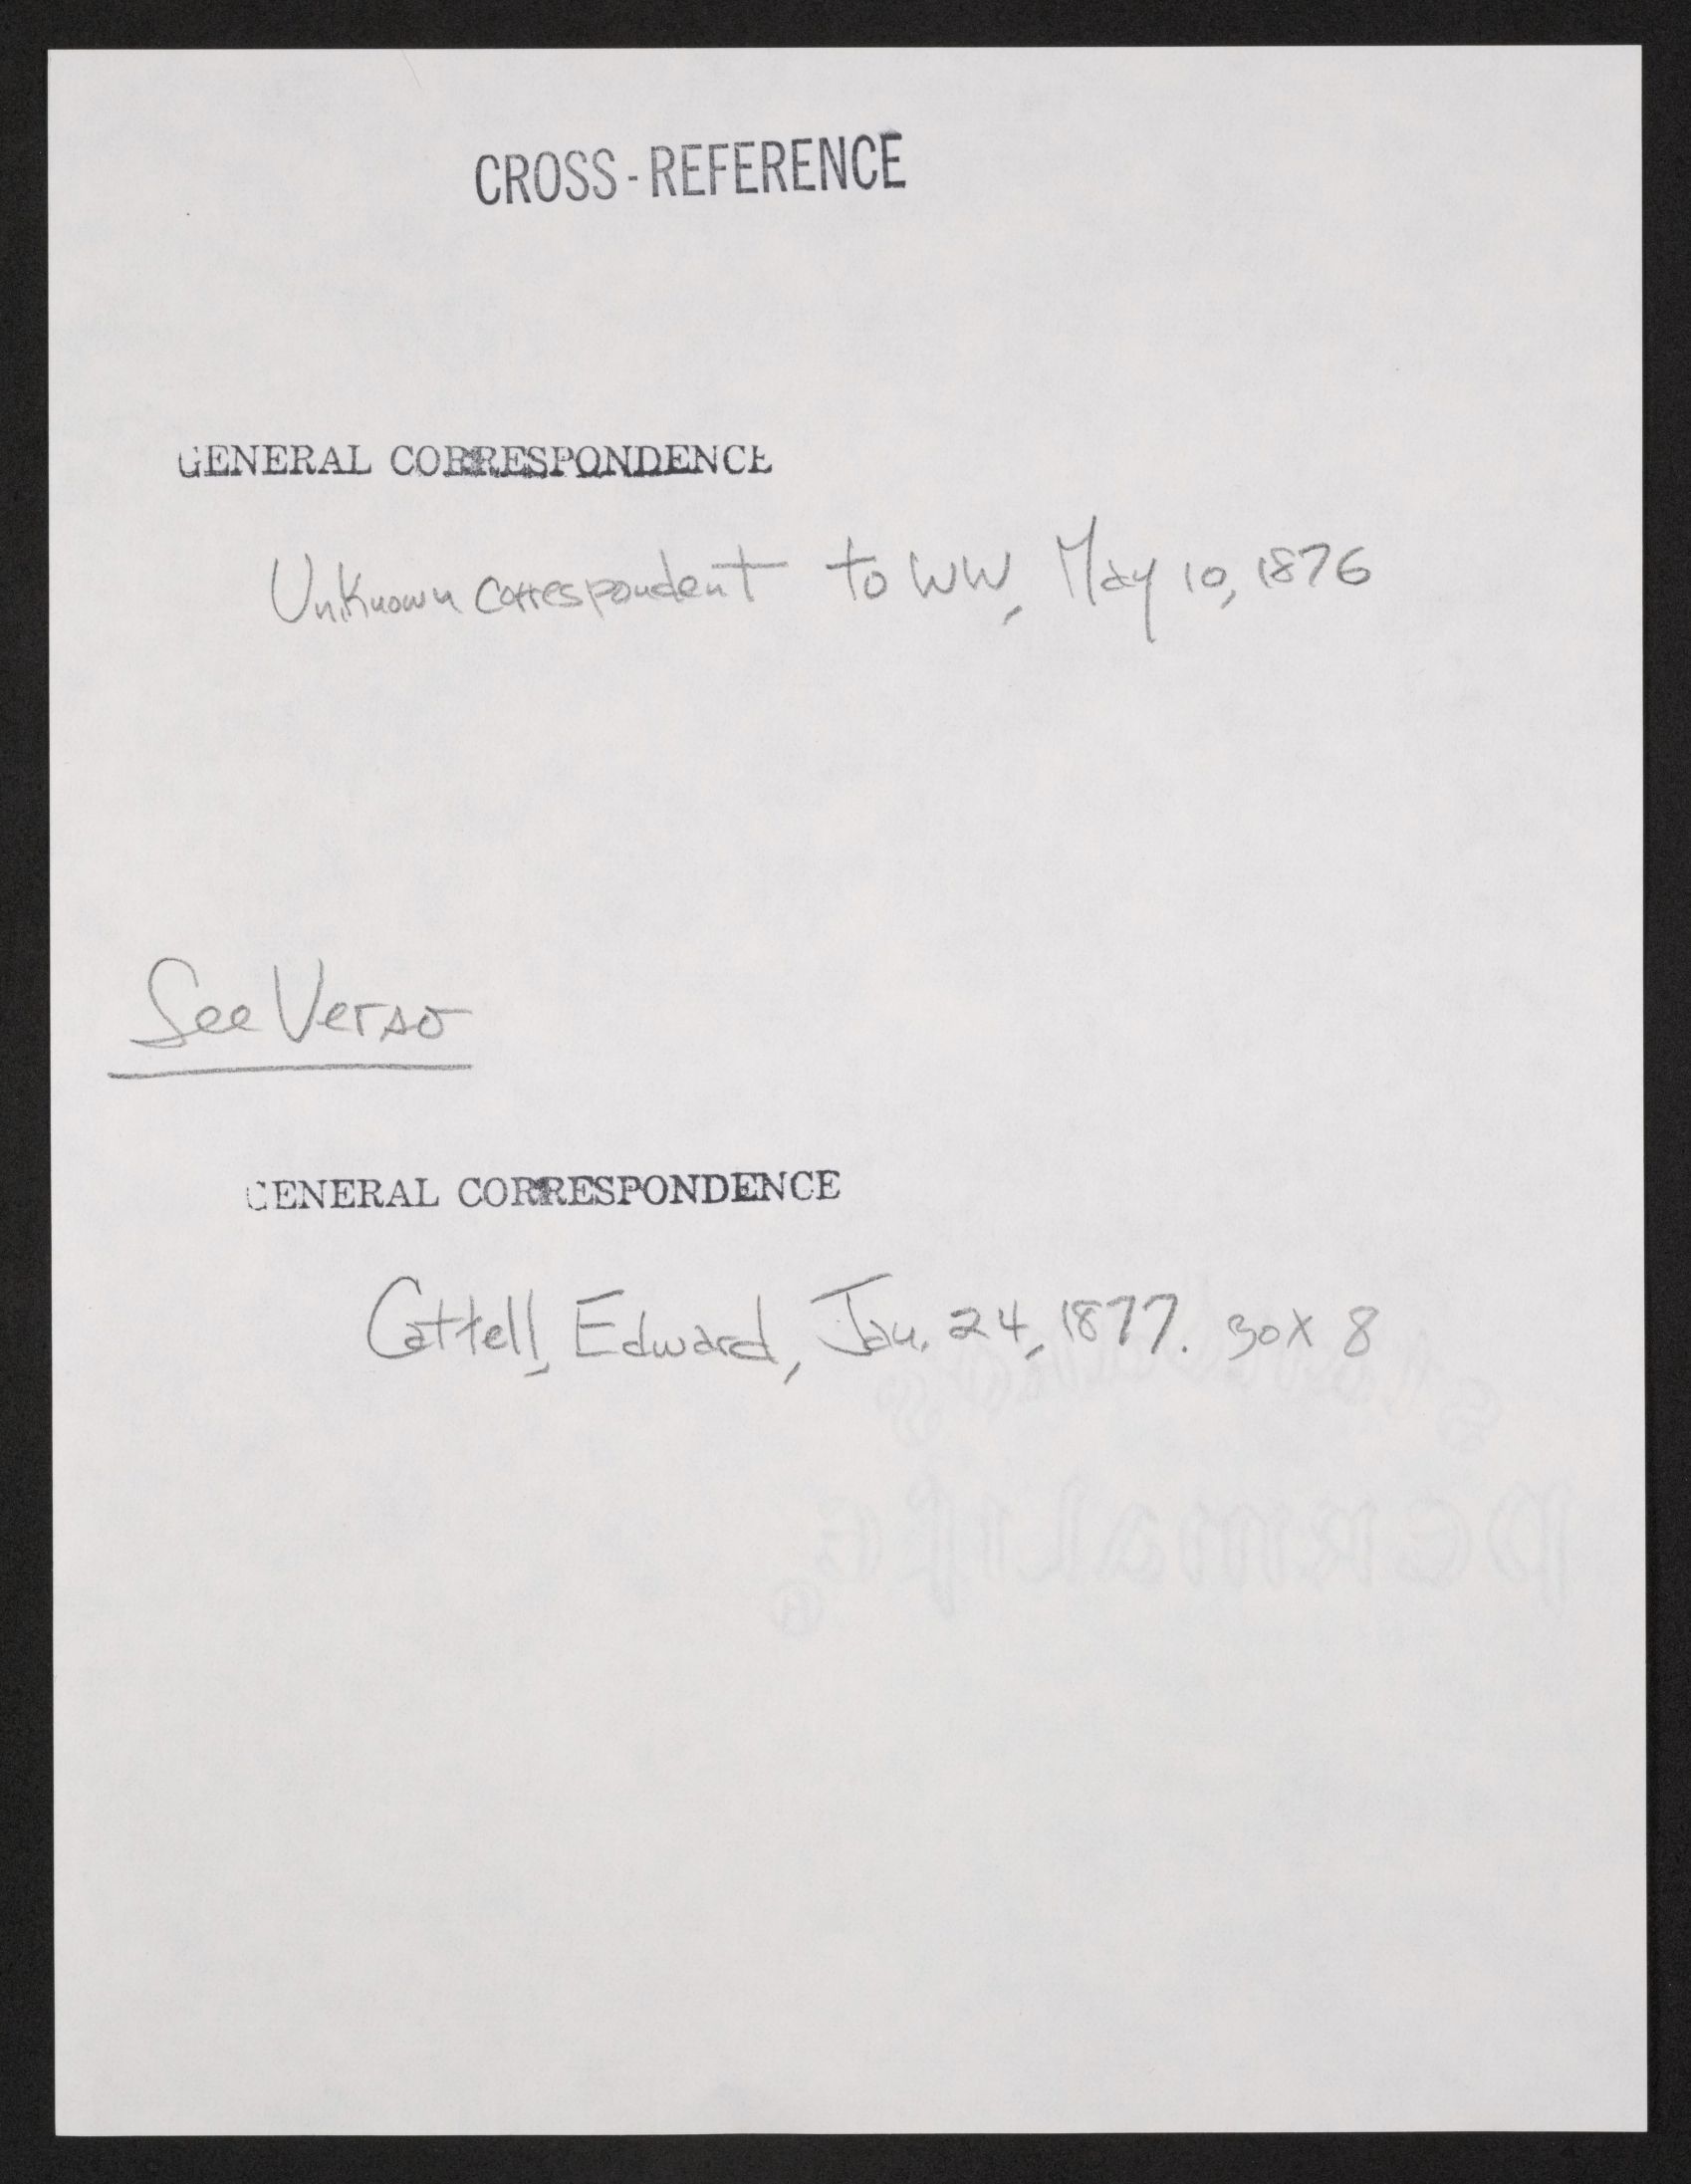 CROSS-REFERENCE
GENERAL CORRESPONDENCE
Unknown correspondent to WW, May 10, 1876
See Verso
GENERAL CORRESPONDENCE
Cattell, Edward, Jan. 24, 1877. 30x8
PERMALIFE